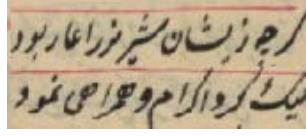 گرچه زیشان شیر نر را عار بود
لیک کرد اکرام و همراهی نمود